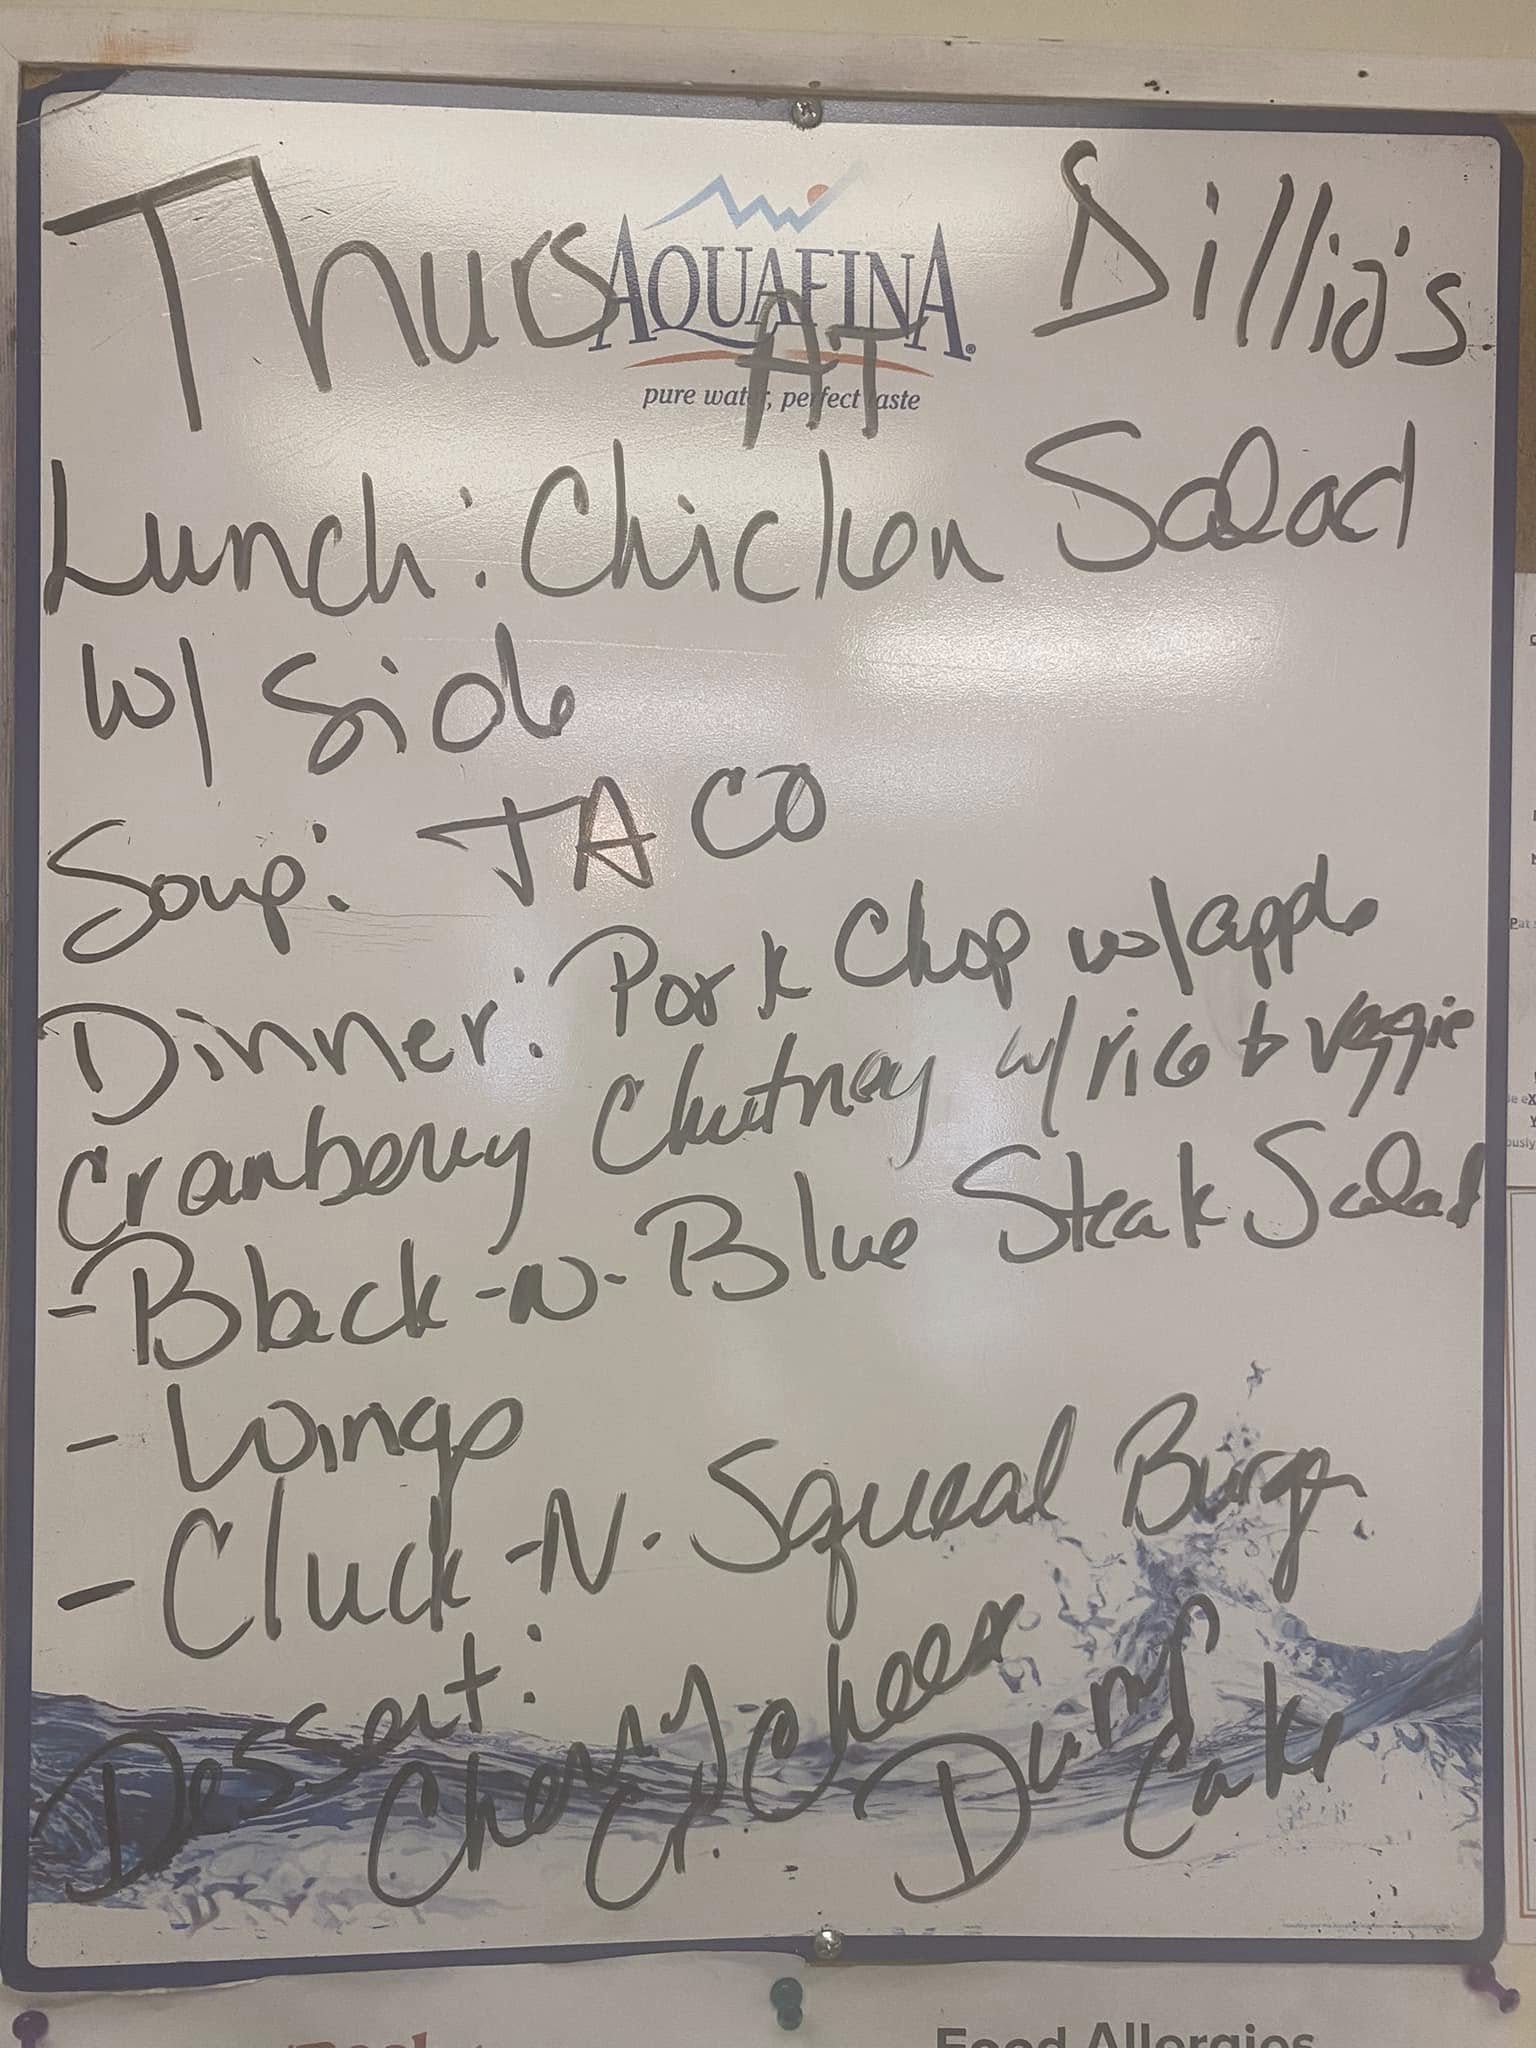 Thurs AT Dillio's
AQUAFINA
pure water, perfect taste
Lunch: Chicken Salad
w/ side
Soup: TACO
Dinner: Pork Chop w/ apple
Cranberry Chutney w/ rice & veggie
- Black-N-Blue Steak Salad
- Wings
- Cluck-N-Squeal Burger
Dessert:
Cherry Cr. Cheese Dump Cake
Food Allergies